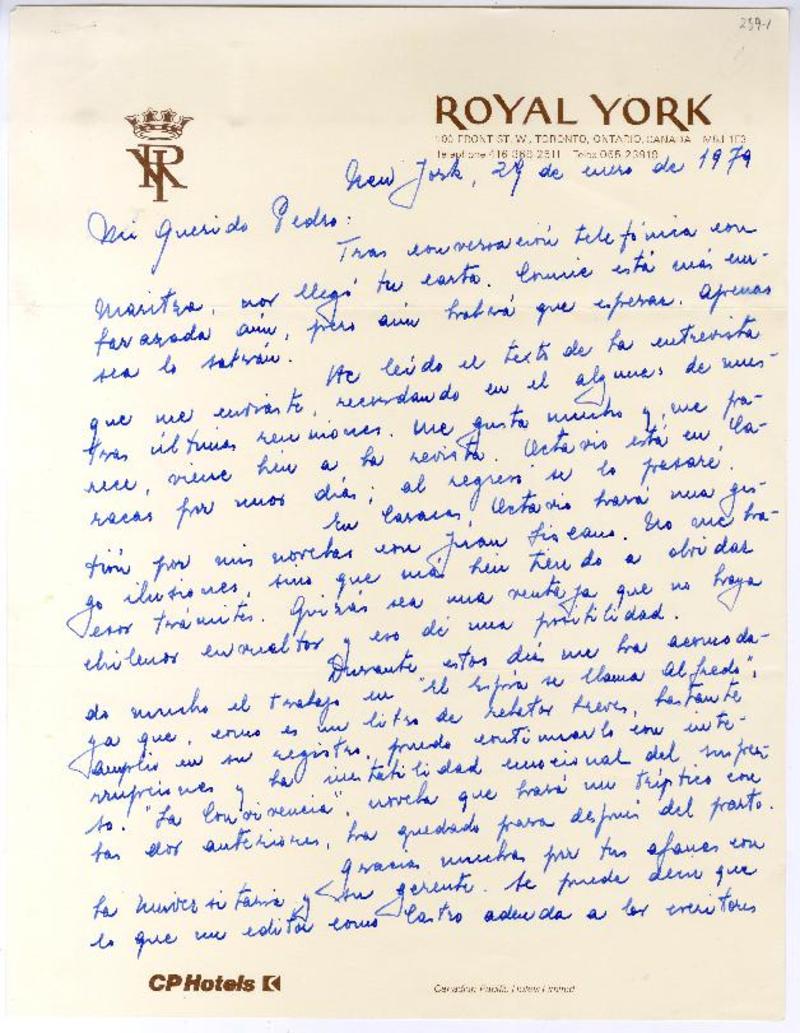 239-1
ROYAL YORK
100 FRONT ST. W., TORONTO, ONTARIO, CANADA M5J 1E3
Telephone 416-368-2511 Telex 065-23919
New York, 29 de enero de 1979
Mi Querido Pedro:
Tras conversación telefónica con
Maritza, nos llegó tu carta. Connie está más em-
barazada aún, pero aún habrá que esperar. Apenas
sea lo sabrán.
He leído el texto de la entrevista
que me enviaste, recordando en el algunas de nues-
tras últimas reuniones. Me gusta mucho y, me pa-
rece, viene bien a la revista. Octavio está en Ca-
racas por unos días; al regreso se lo pasaré.
En Caracas, Octavio hará una ges-
tión por mis novelas con Juan Liscano. No me ha-
go ilusiones, sino que más bien tiendo a olvidar
esos trámites. Quizás sea una ventaja que no haya
chilenos envueltos y eso dé una posibilidad.
Durante estos días me ha acomoda-
do mucho el trabajo en "El Espía se llama Alfredo",
ya que, como es un libro de relatos breves, bastante
amplio en su registro, puedo continuarlo con inte-
rrupciones y la inestabilidad emocional del suspen-
so. "La Convivencia", novela que hará un tríptico con
las dos anteriores, ha quedado para después del parto.
Gracias muchas por tus afanes con
la Universitaria y su gerente. Se puede decir que
lo que un editor como Castro adeuda a los escritores
CP Hotels
Canadian Pacific Hotels Limited